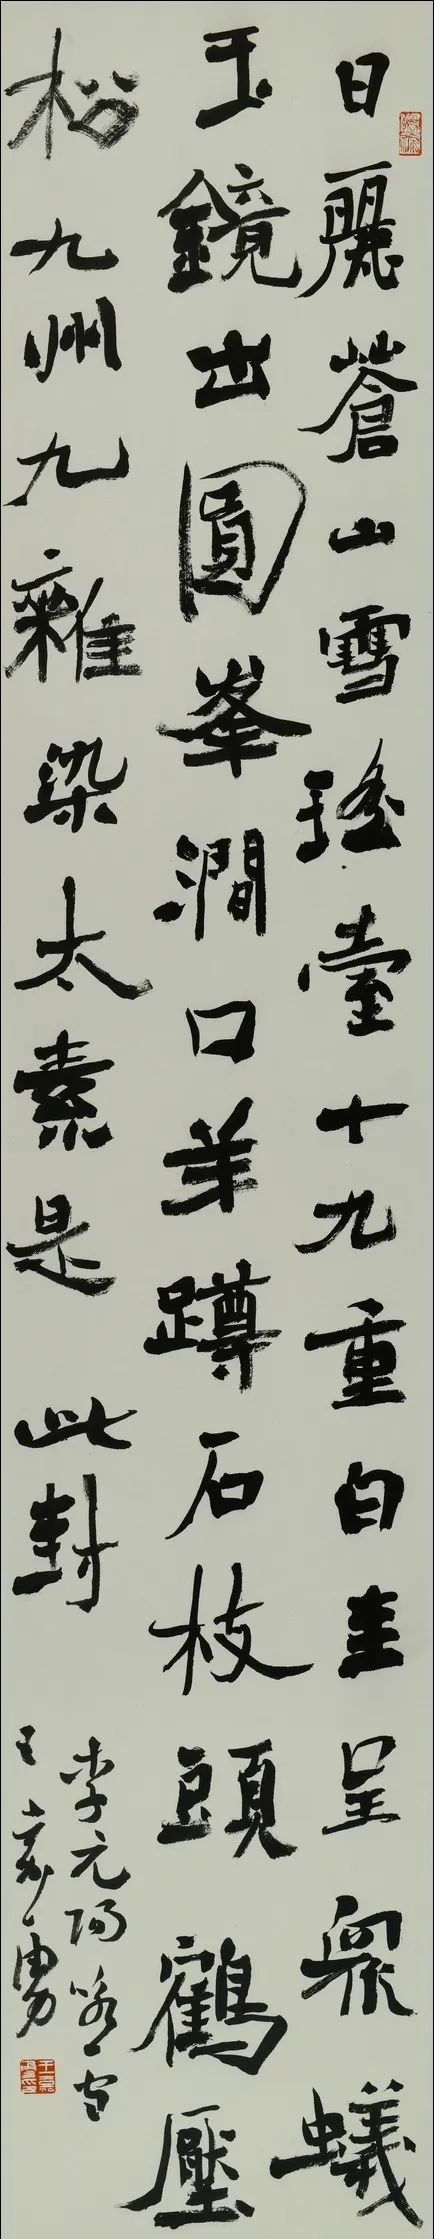 日麗蒼山雪瑤臺十九重白圭呈眾蟻
玉鏡出圓峯澗口羊蹲石枝頭鶴壓
松九州九雜染太素是此對
李元陽詠雪
王嘉勇